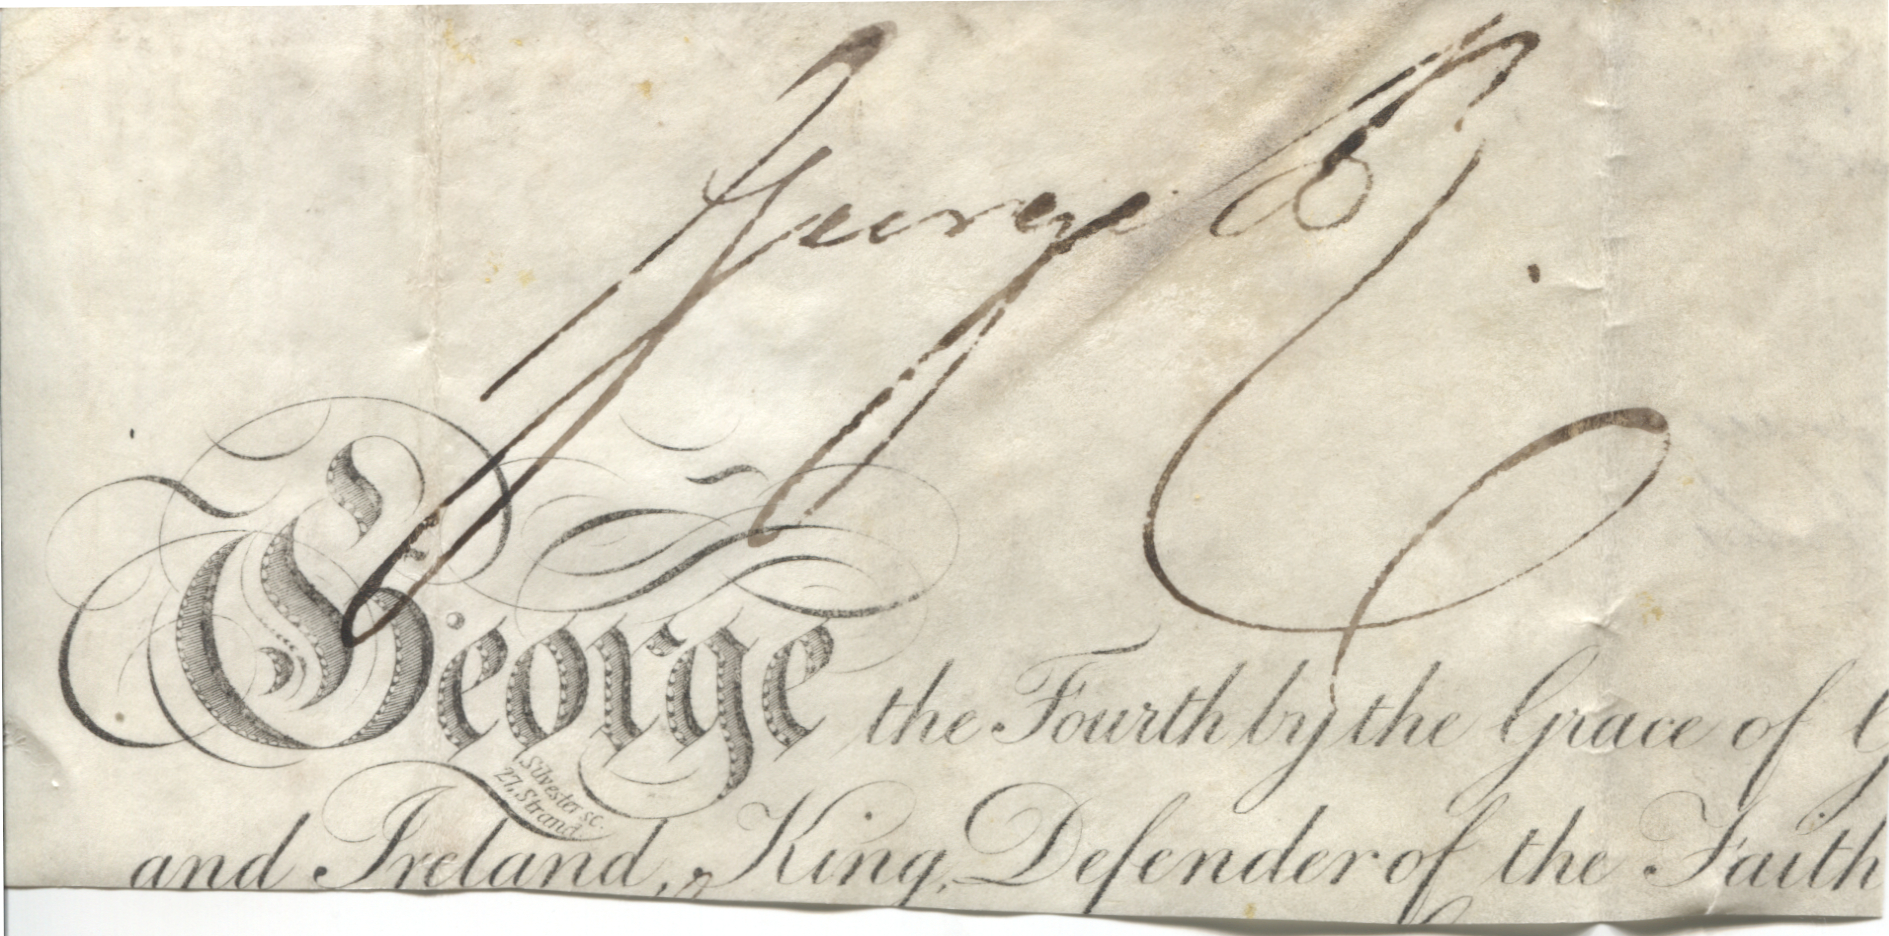 George R.
George the Fourth by the Grace of G
Silvester sc.
27, Strand
and Ireland, King, Defender of the Faith